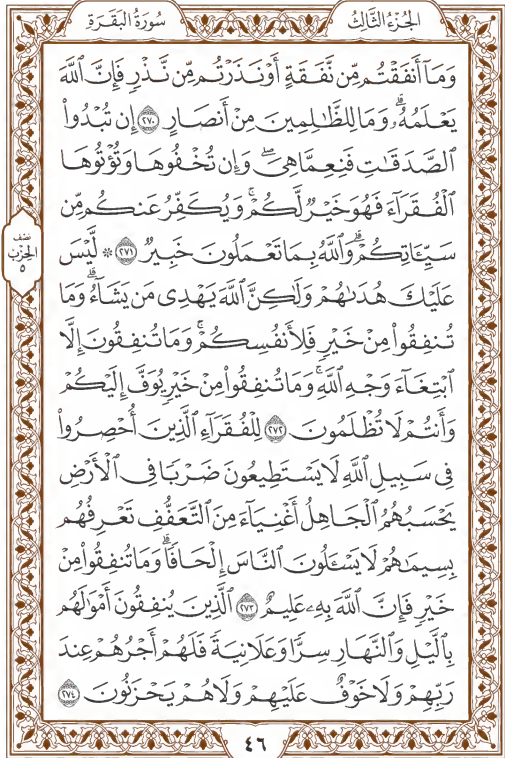 الجُزْءُ الثَّالِثُ
سُورَةُ البَقَرَةِ
وَمَآ أَنفَقْتُم مِّن نَّفَقَةٍ أَوْ نَذَرْتُم مِّن نَّذْرٍ فَإِنَّ ٱللَّهَ
يَعْلَمُهُۥۗ وَمَا لِلظَّٰلِمِينَ مِنْ أَنصَارٍ ٢٧٠ إِن تُبْدُوا۟
ٱلصَّدَقَٰتِ فَنِعِمَّا هِىَۖ وَإِن تُخْفُوهَا وَتُؤْتُوهَا
ٱلْفُقَرَآءَ فَهُوَ خَيْرٌ لَّكُمْۚ وَيُكَفِّرُ عَنكُم مِّن
سَيِّـَٔاتِكُمْۗ وَٱللَّهُ بِمَا تَعْمَلُونَ خَبِيرٌ ٢٧١ ۞ لَّيْسَ
عَلَيْكَ هُدَىٰهُمْ وَلَٰكِنَّ ٱللَّهَ يَهْدِى مَن يَشَآءُۗ وَمَا
تُنفِقُوا۟ مِنْ خَيْرٍ فَلِأَنفُسِكُمْۚ وَمَا تُنفِقُونَ إِلَّا
ٱبْتِغَآءَ وَجْهِ ٱللَّهِۚ وَمَا تُنفِقُوا۟ مِنْ خَيْرٍ يُوَفَّ إِلَيْكُمْ
وَأَنتُمْ لَا تُظْلَمُونَ ٢٧٢ لِلْفُقَرَآءِ ٱلَّذِينَ أُحْصِرُوا۟
فِى سَبِيلِ ٱللَّهِ لَا يَسْتَطِيعُونَ ضَرْبًا فِى ٱلْأَرْضِ
يَحْسَبُهُمُ ٱلْجَاهِلُ أَغْنِيَآءَ مِنَ ٱلتَّعَفُّفِ تَعْرِفُهُم
بِسِيمَٰهُمْ لَا يَسْـَٔلُونَ ٱلنَّاسَ إِلْحَافًاۗ وَمَا تُنفِقُوا۟ مِنْ
خَيْرٍ فَإِنَّ ٱللَّهَ بِهِۦ عَلِيمٌ ٢٧٣ ٱلَّذِينَ يُنفِقُونَ أَمْوَٰلَهُم
بِٱلَّيْلِ وَٱلنَّهَارِ سِرًّا وَعَلَانِيَةً فَلَهُمْ أَجْرُهُمْ عِندَ
رَبِّهِمْ وَلَا خَوْفٌ عَلَيْهِمْ وَلَا هُمْ يَحْزَنُونَ ٢٧٤
نِصْف
الحِزْب
٥
٤٦